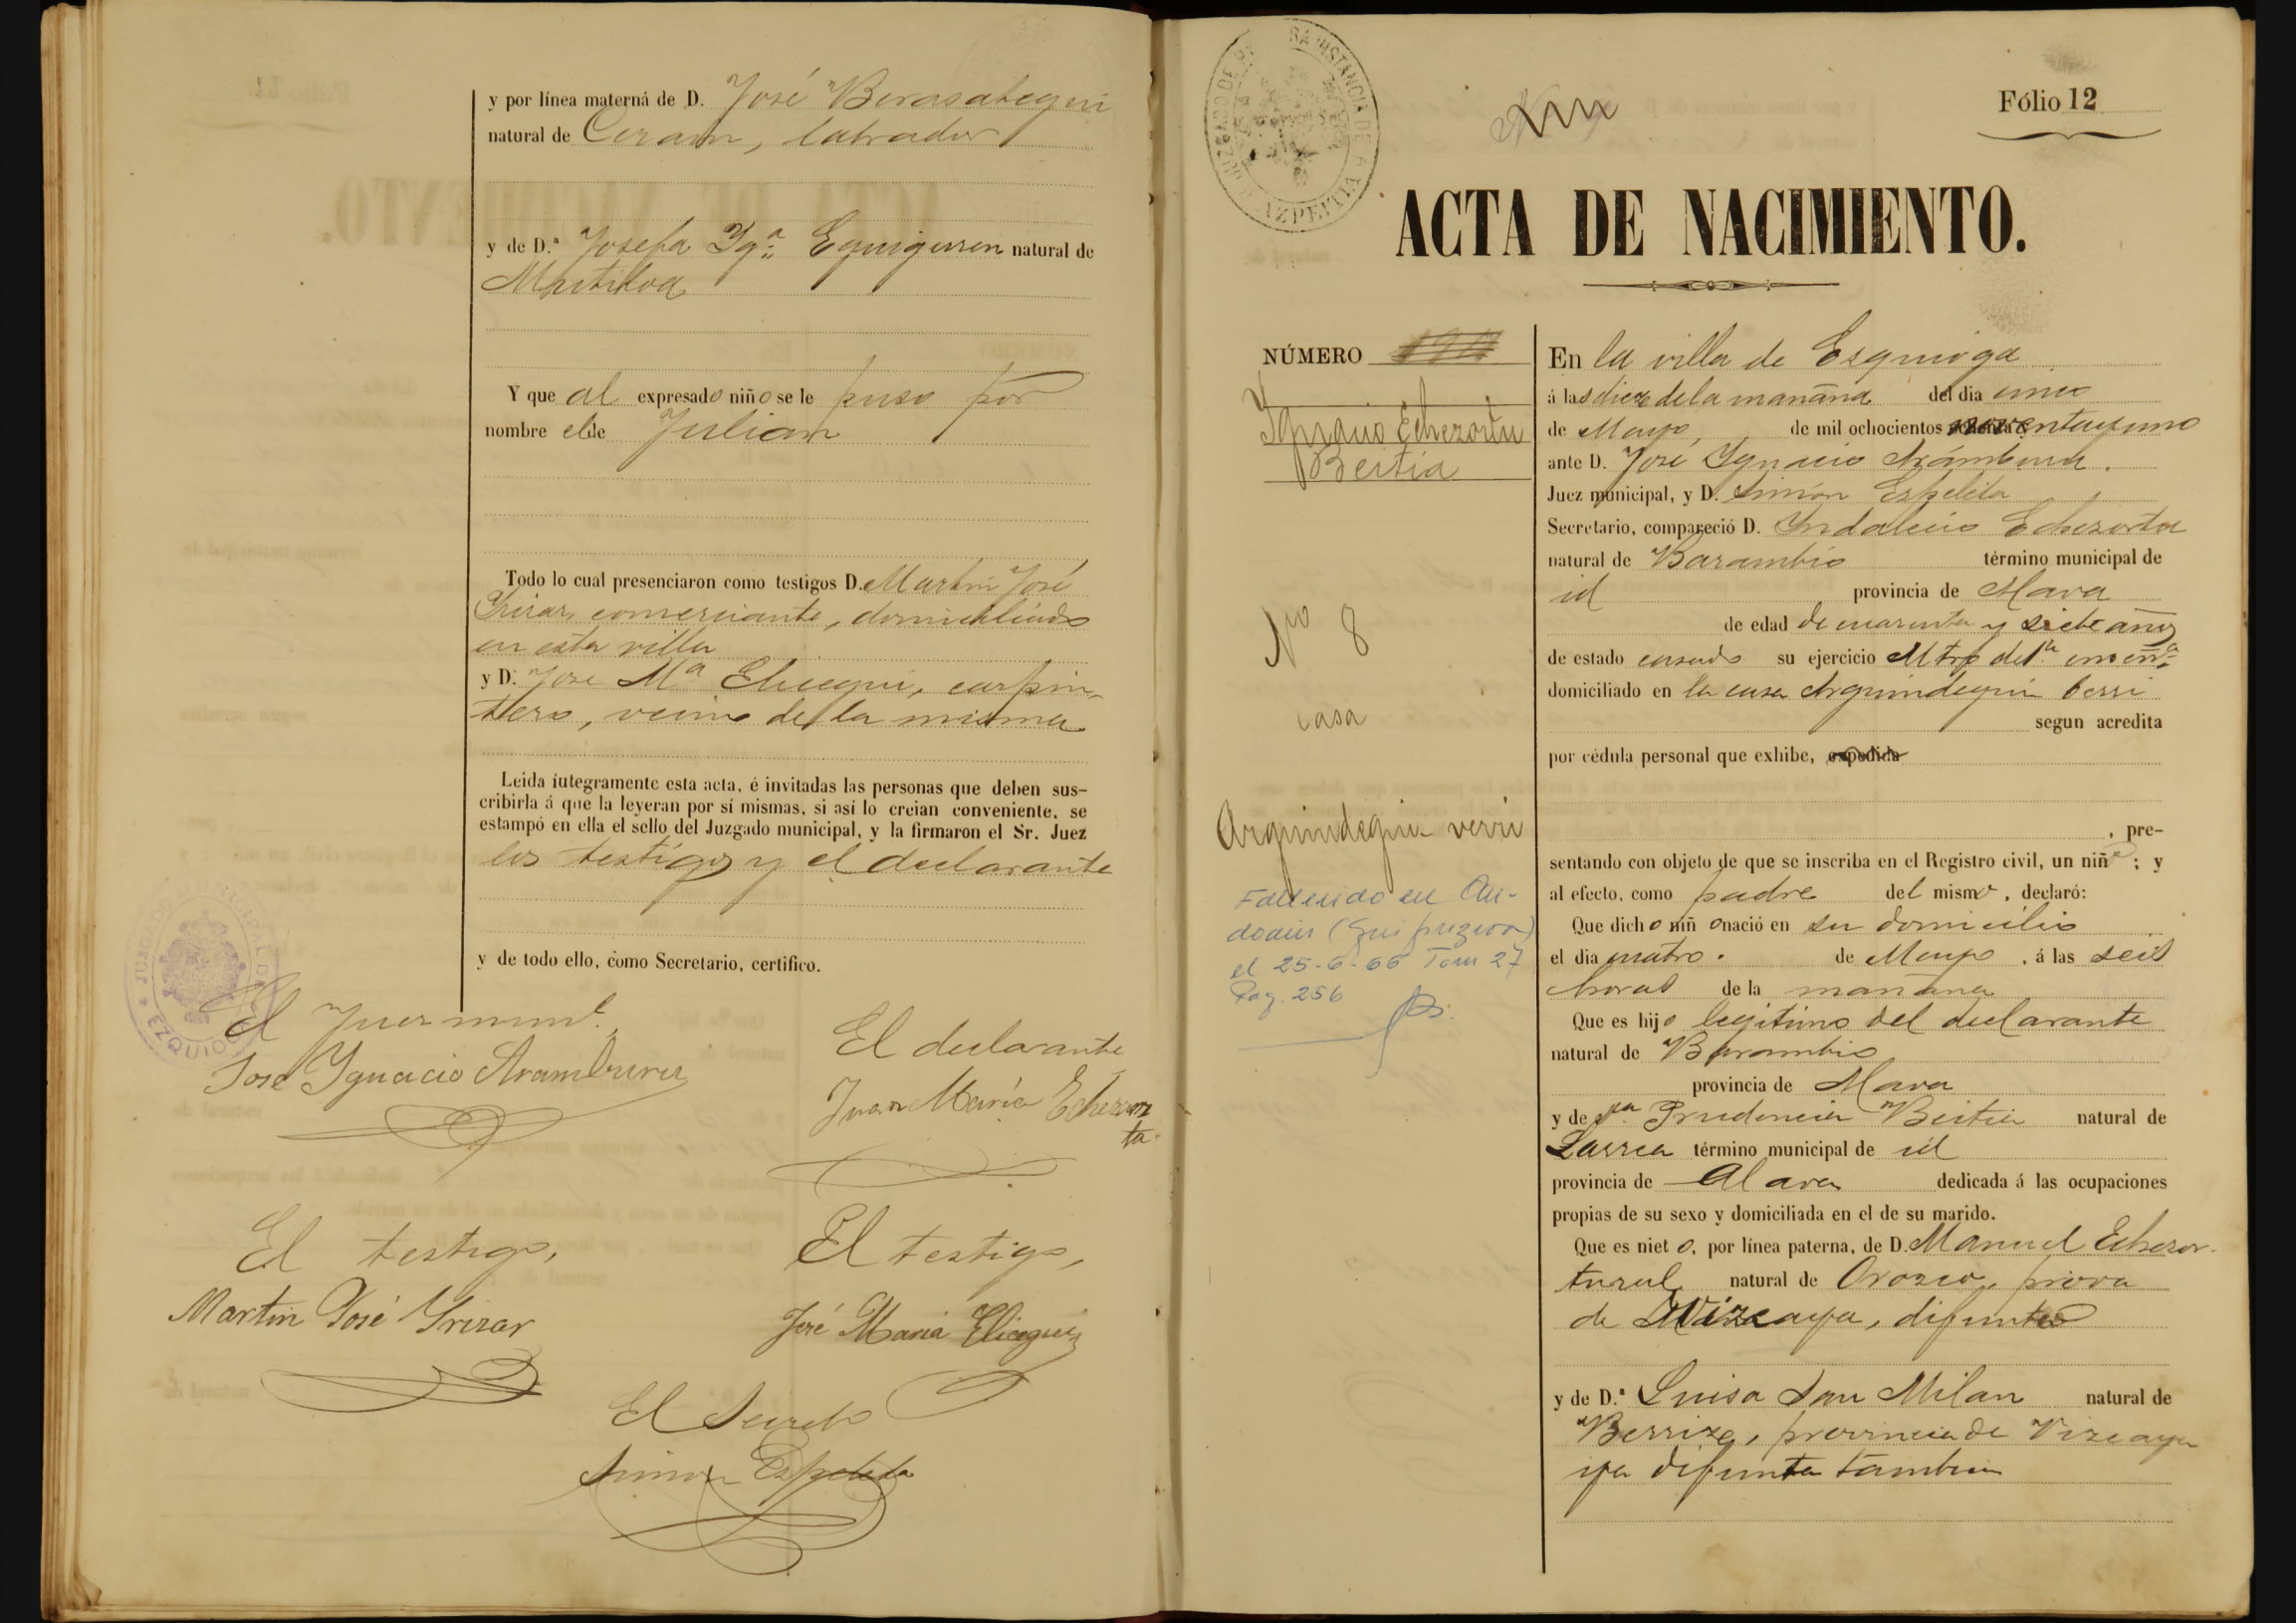 y por línea materna de D. José Berasategui
natural de Cerain, labrador
y de D.ª Josefa Yg.ª Eguiguren natural de
Mutiloa
Y que al expresado niño se le puso por
nombre el de Julian
Todo lo cual presenciaron como testigos D. Martin José
Yrizar, comerciante, domiciliado
en esta villa
y D. Jose Mª Elicegui, carpin-
tero, vecino de la misma
Leida íntegramente esta acta, é invitadas las personas que deben sus-
cribirla á que la leyeran por sí mismas, si así lo creian conveniente, se
estampó en ella el sello del Juzgado municipal, y la firmaron el Sr. Juez
los testigos y el declarante
y de todo ello, como Secretario, certifico.
JUZGADO MUNICIPAL DE EZQUIOGA
El Juez munl.
Jose Ygnacio Aramburu
El declarante
Juan María Echezarre
ta
El testigo,
Martin José Yrizar
El testigo,
José Maria Elicegui
El Secreto
Simon Espeleta
JUZGADO DE PRIMERA INSTANCIA DE AZPEITIA
Fólio 12
ACTA DE NACIMIENTO.
NÚMERO
Ygnacio Echezortu
Beitia
Nº 8
casa
Arguindegui verri
Fallecido en An-
doain (Guipuzcoa)
el 25-6-66 Tom 27
Pag. 256
En la villa de Ezquioga
á las diez de la mañana del dia cinco
de Mayo, de mil ochocientos noventa y uno
ante D. José Ygnacio Arámburu.
Juez municipal, y D. Simón Espeleta
Secretario, compareció D. Yndalecio Echezortu
natural de Barambio término municipal de
id provincia de Alava
de edad de cuarenta y siete años
de estado casado su ejercicio Mtro de 1ª enseñª
domiciliado en la casa Arguindegui berri
segun acredita
por cédula personal que exhibe, expedida
, pre-
sentando con objeto de que se inscriba en el Registro civil, un niño; y
al efecto, como padre del mismo, declaró:
Que dicho niño nació en su domicilio
el dia cuatro. de Mayo, á las seis
horas de la mañana
Que es hijo legitimo del declarante
natural de Barambio
provincia de Alava
y de Dª Prudencia Beitia natural de
Larrea término municipal de id
provincia de Alava dedicada á las ocupaciones
propias de su sexo y domiciliada en el de su marido.
Que es nieto, por línea paterna, de D. Manuel Echezor-
tu natural de Orozco, prova
de Vizcaya, difunto
y de D.ª Luisa San Milan natural de
Berriz, provincia de Vizcaya
ya difunta tambien